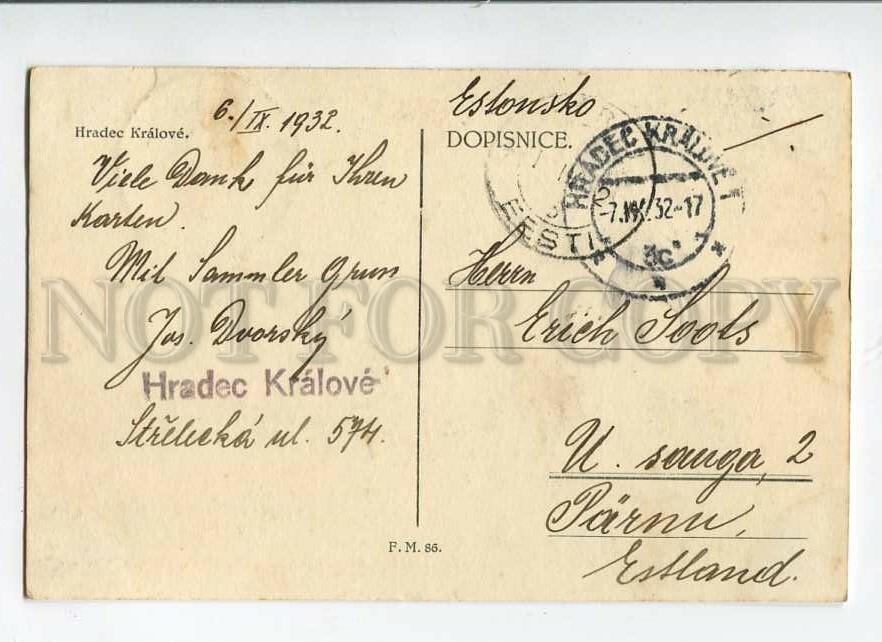 Hradec Králové.
6./IX. 1932.
Viele Dank für Ihren
Karten.
Mit Sammler Grun
Jos. Dvorský
Hradec Králové
Střelecká ul. 574.
F. M. 86.
Estonsko
DOPISNICE.
HRADEC KRÁLOVÉ 1
32-17
3c*
EESTI
Herrn
Erich Soots
U. sauga, 2
Pärnu,
Estland.
NOT FOR COPY